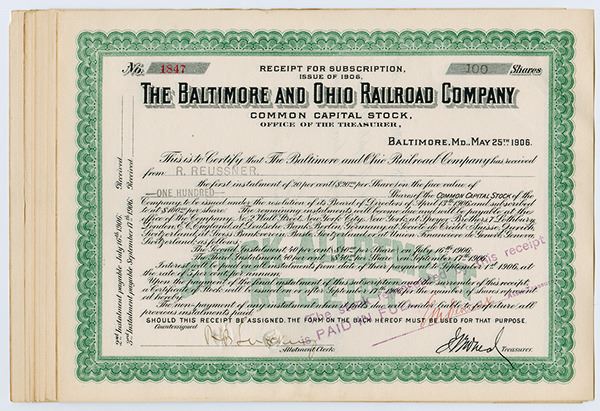 No. 1847
RECEIPT FOR SUBSCRIPTION,
ISSUE OF 1906,
100 Shares
THE BALTIMORE AND OHIO RAILROAD COMPANY
COMMON CAPITAL STOCK,
OFFICE OF THE TREASURER,
BALTIMORE, MD., MAY 25TH 1906.
This is to Certify that The Baltimore and Ohio Railroad Company has received
from R. REUSSNER.
the first instalment of 20 per cent ($20.00 per Share) on the face value of
—ONE HUNDRED— Shares of the COMMON CAPITAL STOCK of the
Company, to be issued under the resolution of its Board of Directors of April 13th 1906 and subscribed
to at $100 per Share. The remaining instalments will become due and will be payable at the
office of the Company, No. 2 Wall Street, New York, or at Speyer Brothers, 7 Lothbury,
London, E.C. England, at Deutsche Bank, Berlin, Germany, at Suisse, Zurich,
Switzerland, at Swiss Bankverein, Basle, Switzerland, or at Geneva,
Switzerland, as follows:
The Second Instalment, 40 per cent ($40.00 per Share) on July 16th 1906.
The Third Instalment, 40 per cent ($40.00 per Share) on September 17th 1906.
Interest will be paid on instalments from date of their payment to September 17th 1906, at
the rate of per cent per annum.
Upon the payment of the final instalment of this subscription and the surrender of this receipt,
a certificate of Stock will be issued on or after September 17th 1906, for the number of shares represent-
ed hereby.
The non-payment of any instalment when due will render liable to forfeiture all
previous instalments paid.
SHOULD THIS RECEIPT BE ASSIGNED, THE FORM ON THE BACK HEREOF MUST BE USED FOR THAT PURPOSE.
Countersigned
Allotment Clerk.
Treasurer.
this receipt
is PAID IN FULL
2nd Instalment payable July 16th 1906. Received
3rd Instalment payable September 17th 1906. Received